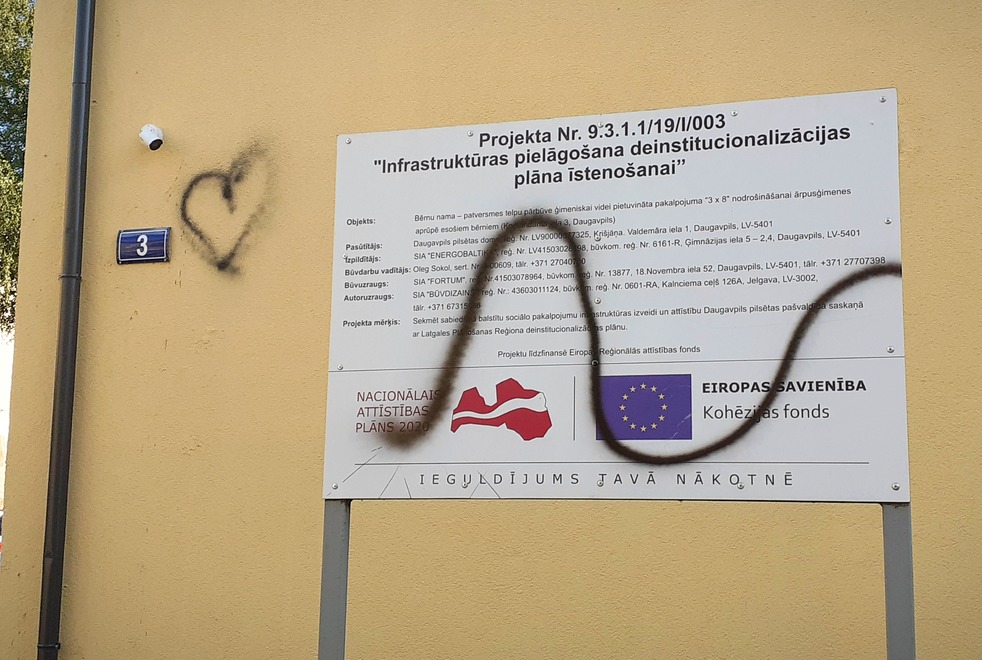 3
Projekta Nr. 9.3.1.1/19/I/003
"Infrastruktūras pielāgošana deinstitucionalizācijas
plāna īstenošanai”
Objekts: Bērnu nama – patversmes telpu pārbūve ģimeniskai videi pietuvināta pakalpojuma "3 x 8" nodrošināšanai ārpusģimenes
aprūpē esošiem bērniem 3, Daugavpils)
Pasūtītājs: Daugavpils pilsētas dome, reģ. Nr. Krišjāņa. Valdemāra iela 1, Daugavpils, LV-5401
Izpildītājs: SIA "ENERGOBALTIKA", reģ. Nr. būvkom. reģ. Nr. 6161-R, Ģimnāzijas iela 5 – 2,4, Daugavpils, LV-5401
Būvdarbu vadītājs: Oleg Sokol, sert. Nr. tālr. +371
Būvuzraugs: SIA "FORTUM", reģ. Nr.41503078964, būvkom. reģ. Nr. 13877, 18.Novembra iela 52, Daugavpils, LV-5401, tālr. +371 27707398
Autoruzraugs: SIA "BŪVDIZAINS", reģ. Nr.: 43603011124, būvkom. reģ. Nr. 0601-RA, Kalnciema ceļš 126A, Jelgava, LV-3002,
tālr. +371
Projekta mērķis: Sekmēt sabiedrībā balstītu sociālo pakalpojumu infrastruktūras izveidi un attīstību Daugavpils pilsētas pašvaldībā saskaņā
ar Latgales Plānošanas Reģiona deinstitucionalizācijas plānu.
Projektu līdzfinansē Eiropas Reģionālās attīstības fonds
NACIONĀLAIS
ATTĪSTĪBAS
PLĀNS 2020
EIROPAS SAVIENĪBA
Kohēzijas fonds
IEGULDĪJUMS TAVĀ NĀKOTNĒ